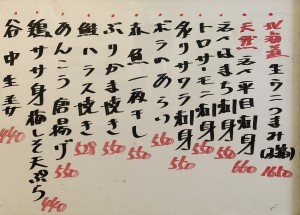 北海道 生ウニつまみ(2箱) 1650
天然 えべ平目刺身 660
えべはまち刺身 550
トロサーモン刺身 550
炙りサワラ刺身 550
ボラのあらい 550
赤魚一夜干し 550
ぶりかま焼き 550
鮭ハラス焼き 528
あんこう唐揚げ 550
鶏ササ身梅しそ天ぷら 440
谷中生姜 440